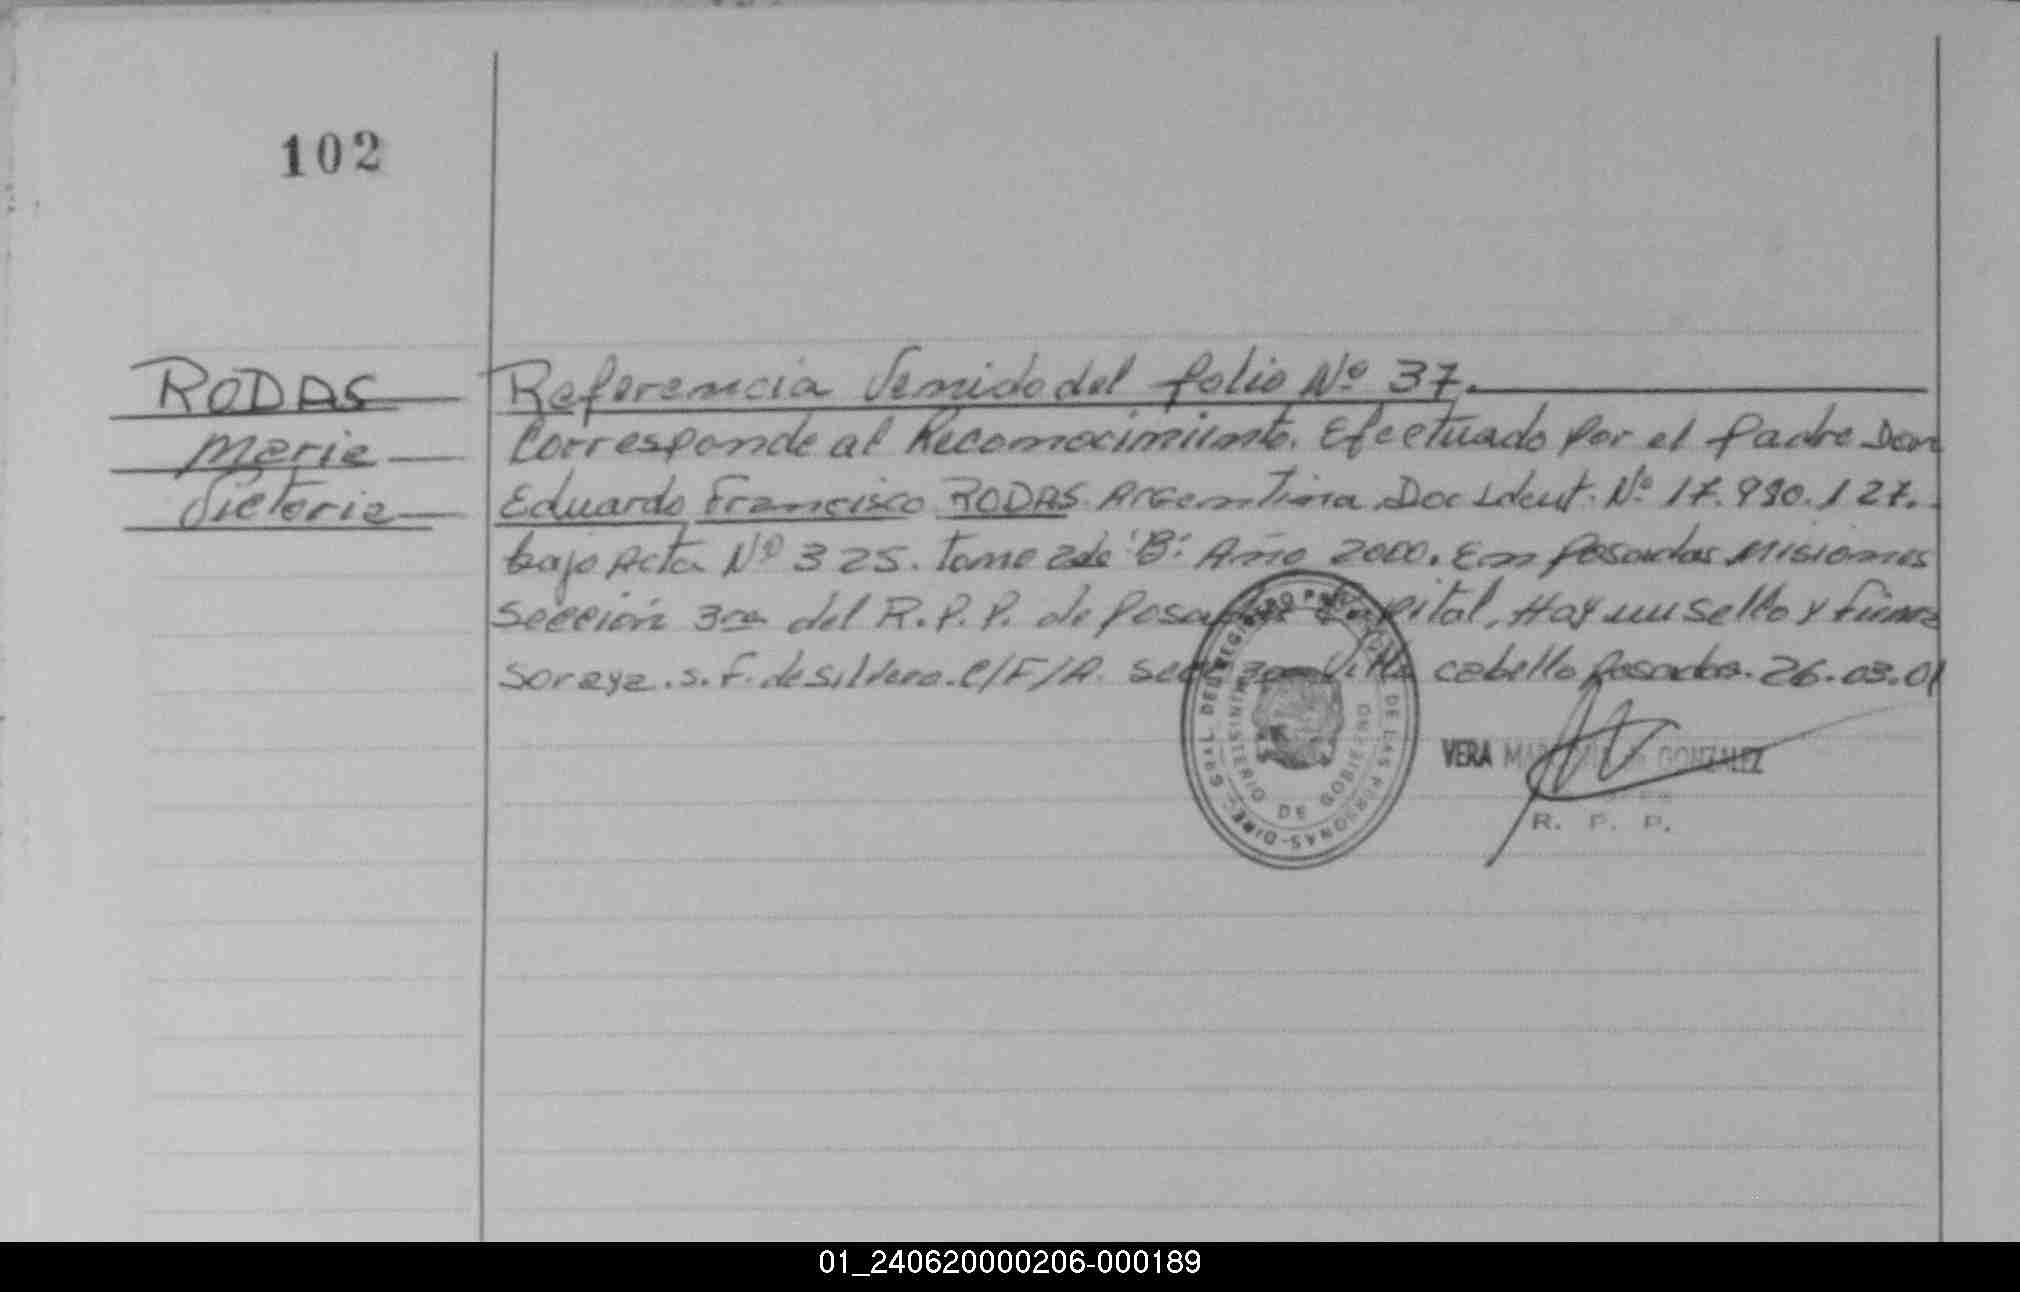 102
RODAS Referencia Venido del folio Nº 37.
Maria Corresponde al Reconocimiento. Efectuado por el padre Don
Victoria Eduardo Francisco RODAS Argentina Doc Ident. Nº 17.990.127.
bajo Acta Nº 325. tomo 2do "B" Año 2000. En posadas Misiones
Sección 3ra del R.P.P. de posadas Capital, Hay un sello y firma
Soraya. S. F. de Silvero. C/F/A. Secc 3ra Villa cabello posadas. 26.03.01
DIREC. GRAL DEL REGISTRO PROVINCIAL DE LAS PERSONAS
MINISTERIO DE GOBIERNO
VERA GONZALEZ
R. P. P.
01_240620000206-000189